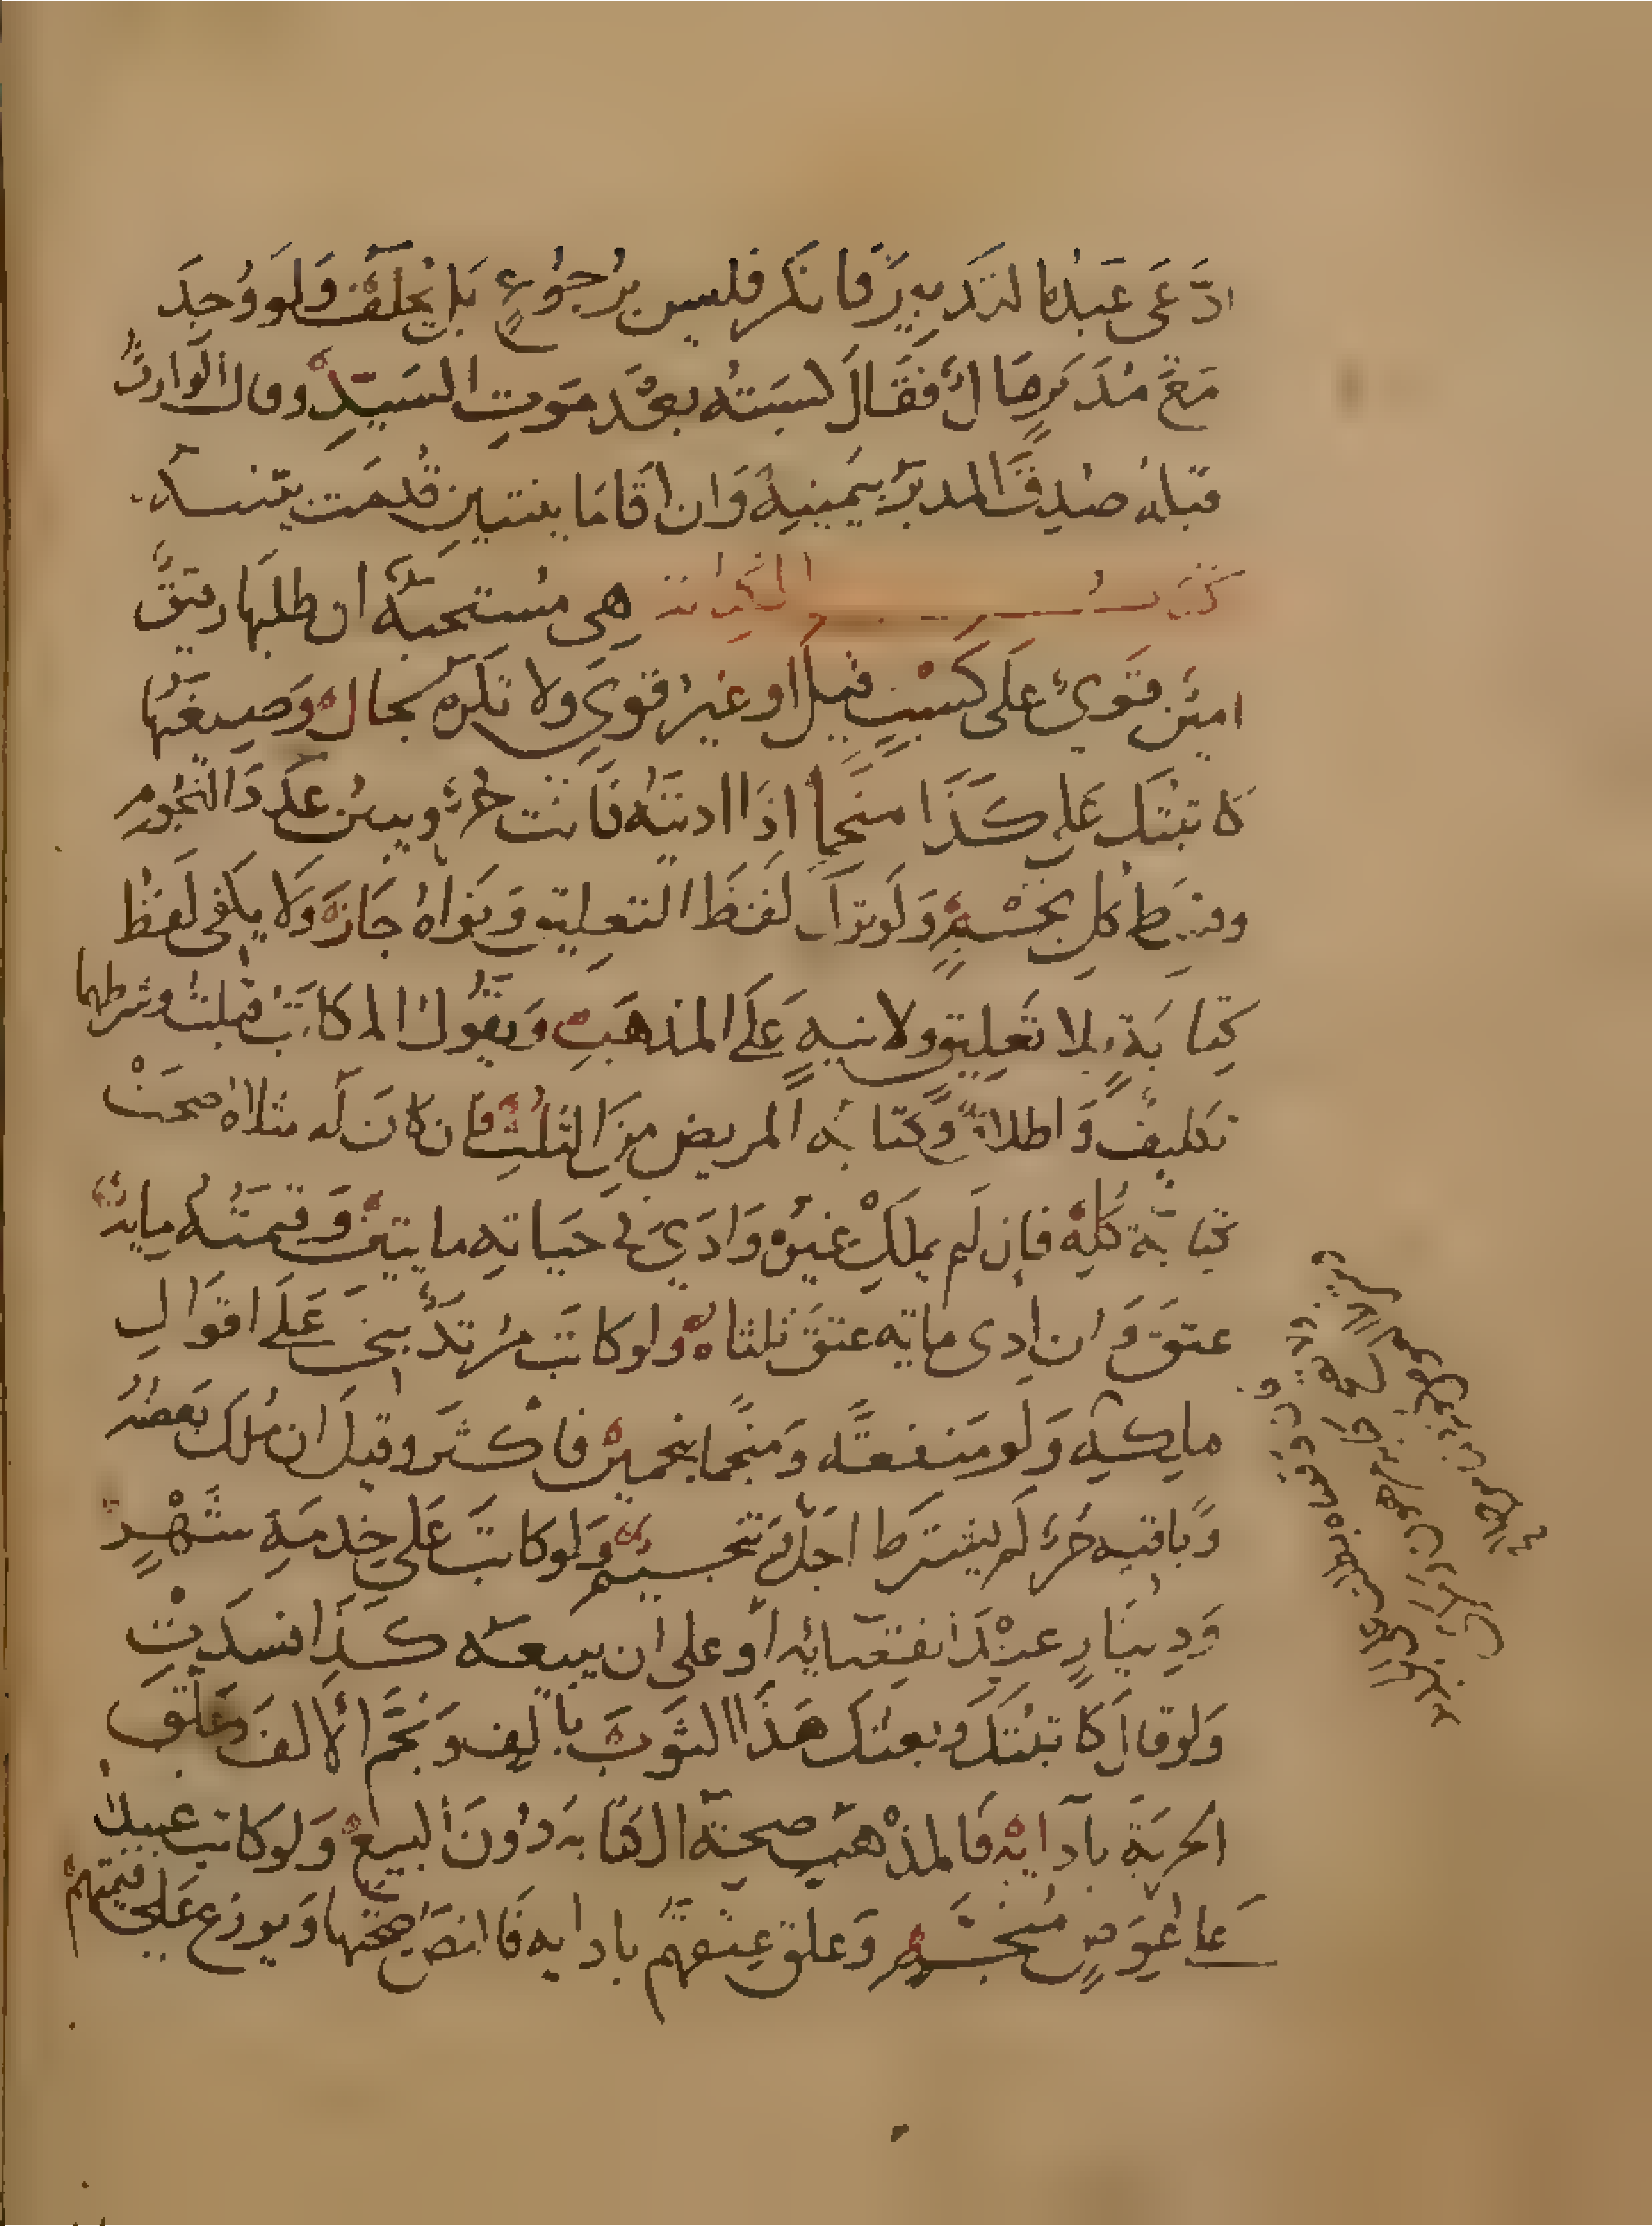 ادَّعَى عَبْدُه التدبيرَ فانكر فليس برُجُوعٍ بَل يُحَلَّفُ وَلَو وُجِدَ
مَعَ مُدَبَّرٍ مَالٌ فَقَالَ كسَبتُه بعْدَ مَوتِ السَيِّدِ وقال الوارثُ
قبلهُ صُدِقَ المدبَّرُ بِيَمِينِهِ وَان اقَامَا بينتين قُدمَت بيّنتــه
كتــــاب الكتابة هي مُستحبة ان طلبَها رقيقٌ
امينٌ قَويٌ عَلَى كَسْبٍ قيل او غيرُ قويٍ ولا تكره بحال وَصِيغَتُها
كاتبتُك على كَذَا منَجماً اذَا اديتَهُ فَانتَ حُرٌ ويبين عَدَدَ النُّجُومِ
وقسط كل نجمٍ وَلَو ترك لَفظَ التعليق وَنواهُ جَازَ وَلا يكفى لَفظُ
كِتابَةٍ بلا تَعلِيقٍ ولا نيةٍ عَلَى المذهَبِ وَيقُولُ المكاتَبُ قبلتُ وشرطهما
تكليفٌ وَاطلاقٌ وَكتابةُ المريض مِنَ الثلُثِ فان كانَ لَه مثلاهُ صحَتْ
كتابةُ كُلِه فان لَم يملكْ غيرَهُ وَادَى فى حَياتِهِ مايتين وَقيمَتُهُ مايةٌ
عتقَ وَان ادى ماية عتقَ ثلثاهُ ولو كاتَبَ مُرتدٌ بنى عَلَى اقوَالِ
ملكِه وَلَو مَنفعةً وَمنجَّما بنجمين فاكثَر وقيلَ ان مَلَكَ بَعضَهُ
وَباقيه حُرٌ لَم يشترط اجَلٌ وَتنجيمٌ وَلو كاتَبَ عَلى خِدمَةِ شَهْرٍ
وَدِينَارٍ عنْدَ انقضائِه اَو على ان يبيعَه كَذَا فسدَتْ
وَلو قالَ كاتبْتُكَ وبعتك هَذَا الثَوبَ بالفٍ وَنَجَّمَ الالفَ وَعَلقَ
الحريةَ بادَايِهِ فَالمذْهَبُ صحةُ الكتابة دُونَ البيعِ وَلو كاتبَ عبيدًا
عَلى عِوَضٍ مُنَجَّمٍ وَعلق عِتقهُم بادايه فَالنصُ صحتها وَيوزع عَلى قيمتهم